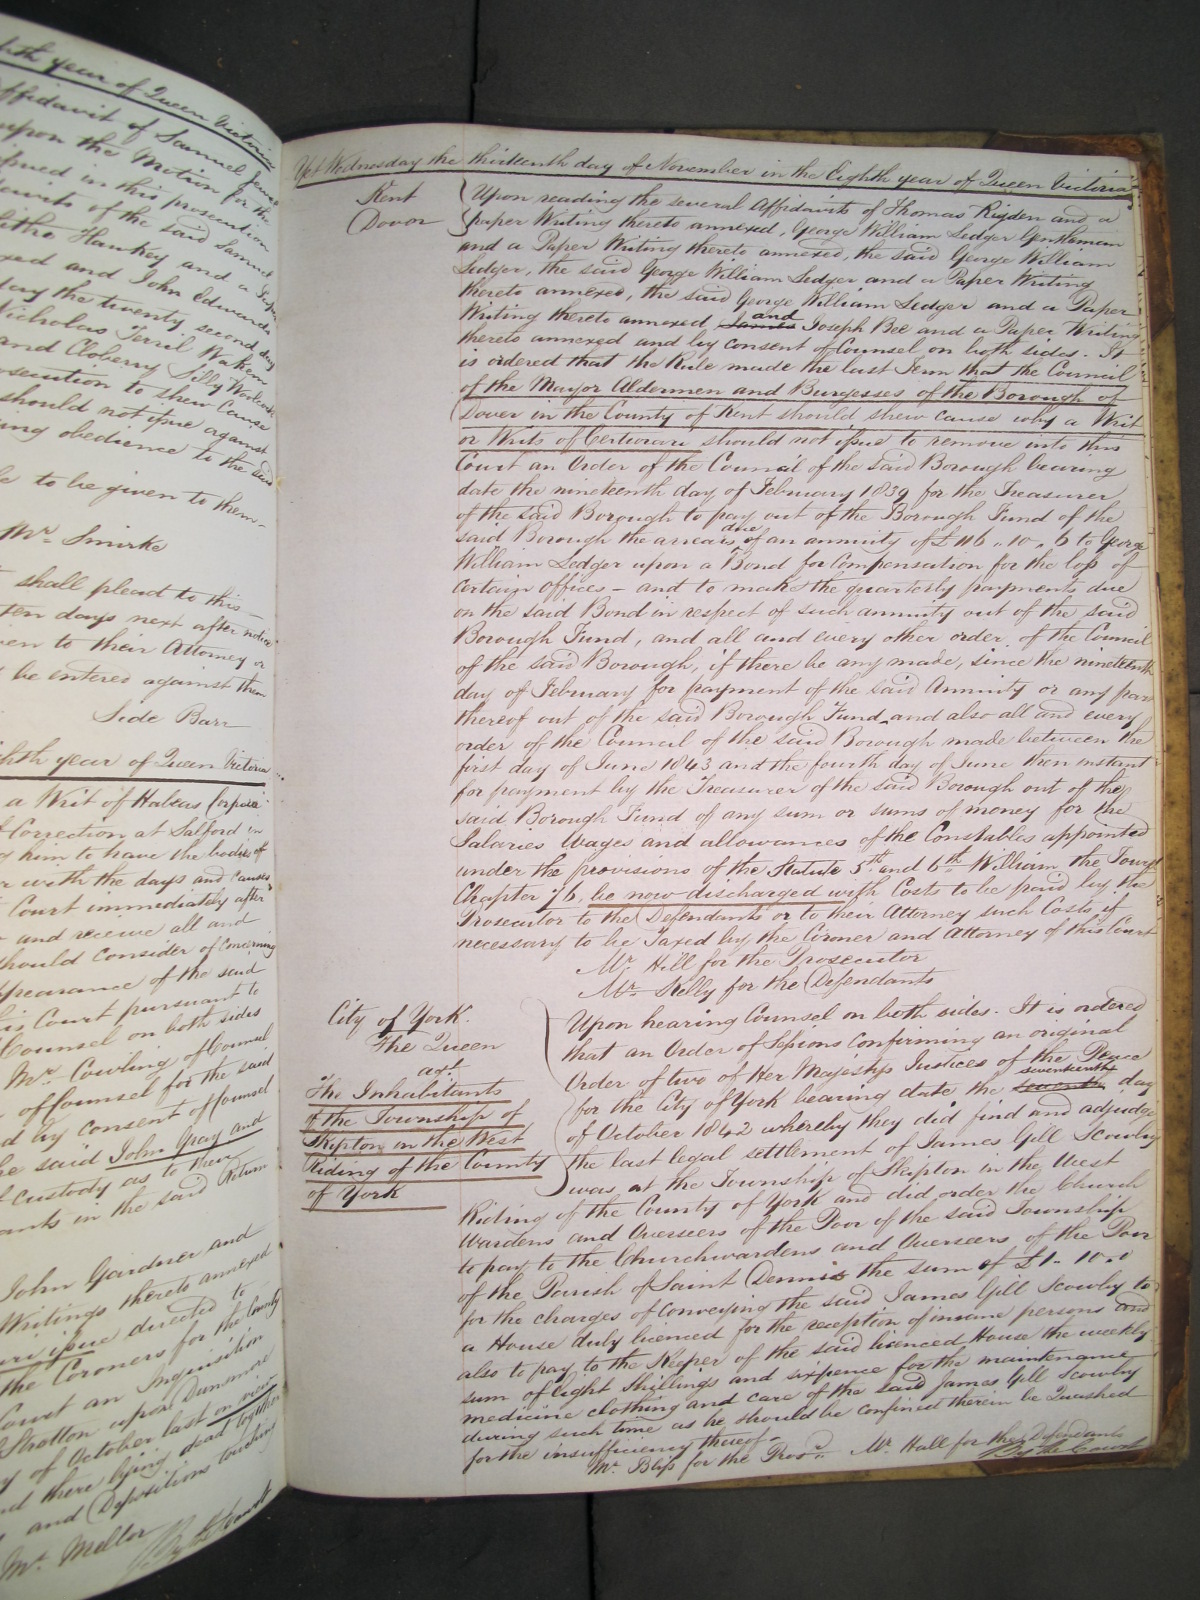 hth year of Queen Victoria
ffidavit of Samuel
upon the Motion for the
in this prosecution
davits of the said Samuel
Hankey and a
xed and John Edwards
day the twenty second day
Nicholas Terril
and Cloberry Silly
secution to shew Cause
should not issue against
ing obedience to the said
to be given to them
Mr. Smirke
shall plead to this
ten days next after notice
en to their Attorney or
be entered against them
Side Barr
hth year of Queen Victoria
a Writ of Habeas Corpora
f Correction at Salford in
him to have the bodies of
with the days and causes
Court immediately after
and receive all and
should consider of concerning
ppearance of the said
is Court pursuant to
Counsel on both sides
Mr. Cowling of Counsel
of Counsel for the said
d by consent of Counsel
he said John Gray and
custody as to their
ants in the said Return
John Gardner and
Writings thereto annexed
issue directed to
the Coroners for the County
Court an Inquisition
Stratton upon Dunsmore
y of October last on view
there lying dead together
and Depositions touching
Mr. Mellor
By the Court
Yet Wednesday the thirteenth day of November in the Eighth year of Queen Victoria
Kent
Dover
Upon reading the several Affidavits of Thomas Rigden and a
paper Writing thereto annexed, George William Ledger Gentleman
and a Paper Writing thereto annexed, the said George William
Ledger, the said George William Ledger and a Paper Writing
thereto annexed, the said George William Ledger and a Paper
Writing thereto annexed James and Joseph Bee and a Paper Writing
thereto annexed and by consent of Counsel on both sides. It
is ordered that the Rule made the last Term that the Council
of the Mayor Aldermen and Burgesses of the Borough of
Dover in the County of Kent should shew cause why a Writ
or Writs of Certiorari should not issue to remove into this
Court an Order of the Council of the said Borough bearing
date the nineteenth day of February 1839 for the Treasurer
of the said Borough to pay out of the Borough Fund of the
said Borough the arrears due of an annuity of £116 .. 10 .. 6 to George
William Ledger upon a Bond for Compensation for the loss of
certain offices - and to make the quarterly payments due
on the said Bond in respect of such annuity out of the said
Borough Fund, and all and every other order of the Council
of the said Borough, if there be any made, since the nineteenth
day of February for payment of the said Annuity or any part
thereof out of the said Borough Fund and also all and every
order of the Council of the said Borough made between the
first day of June 1843 and the fourth day of June then instant
for payment by the Treasurer of the said Borough out of the
said Borough Fund of any sum or sums of money for the
Salaries Wages and allowances of the Constables appointed
under the provisions of the Statute 5th and 6th William the Fourth
Chapter 76, be now discharged with Costs to be paid by the
Prosecutor to the Defendants or to their Attorney such Costs if
necessary to be Taxed by the Coroner and Attorney of this Court
Mr. Hill for the Prosecutor
Mr. Kelly for the Defendants
City of York.
The Queen
agt.
The Inhabitants
of the Township of
Skipton in the West
Riding of the County
of York
Upon hearing Counsel on both sides. It is ordered
that an Order of Sessions Confirming an original
Order of two of Her Majesty's Justices of the Peace
for the City of York bearing date the seventh seventeenth day
of October 1842 whereby they did find and adjudge
the last legal settlement of James Gill Scowby
was at the Township of Skipton in the West
Riding of the County of York and did order the Church
Wardens and Overseers of the Poor of the said Township
to pay to the Churchwardens and Overseers of the Poor
of the Parish of Saint Dennis the sum of £1 - 10 . 0
for the charges of conveying the said James Gill Scowby to
a House duly licenced for the reception of insane persons and
also to pay to the Keeper of the said licenced House the weekly
sum of Eight Shillings and sixpence for the maintenance
medicine clothing and care of the said James Gill Scowby
during such time as he should be confined therein be Quashed
for the insufficiency thereof.
Mr. Bliss for the Prosr. Mr. Hall for the Defendants
By the Court